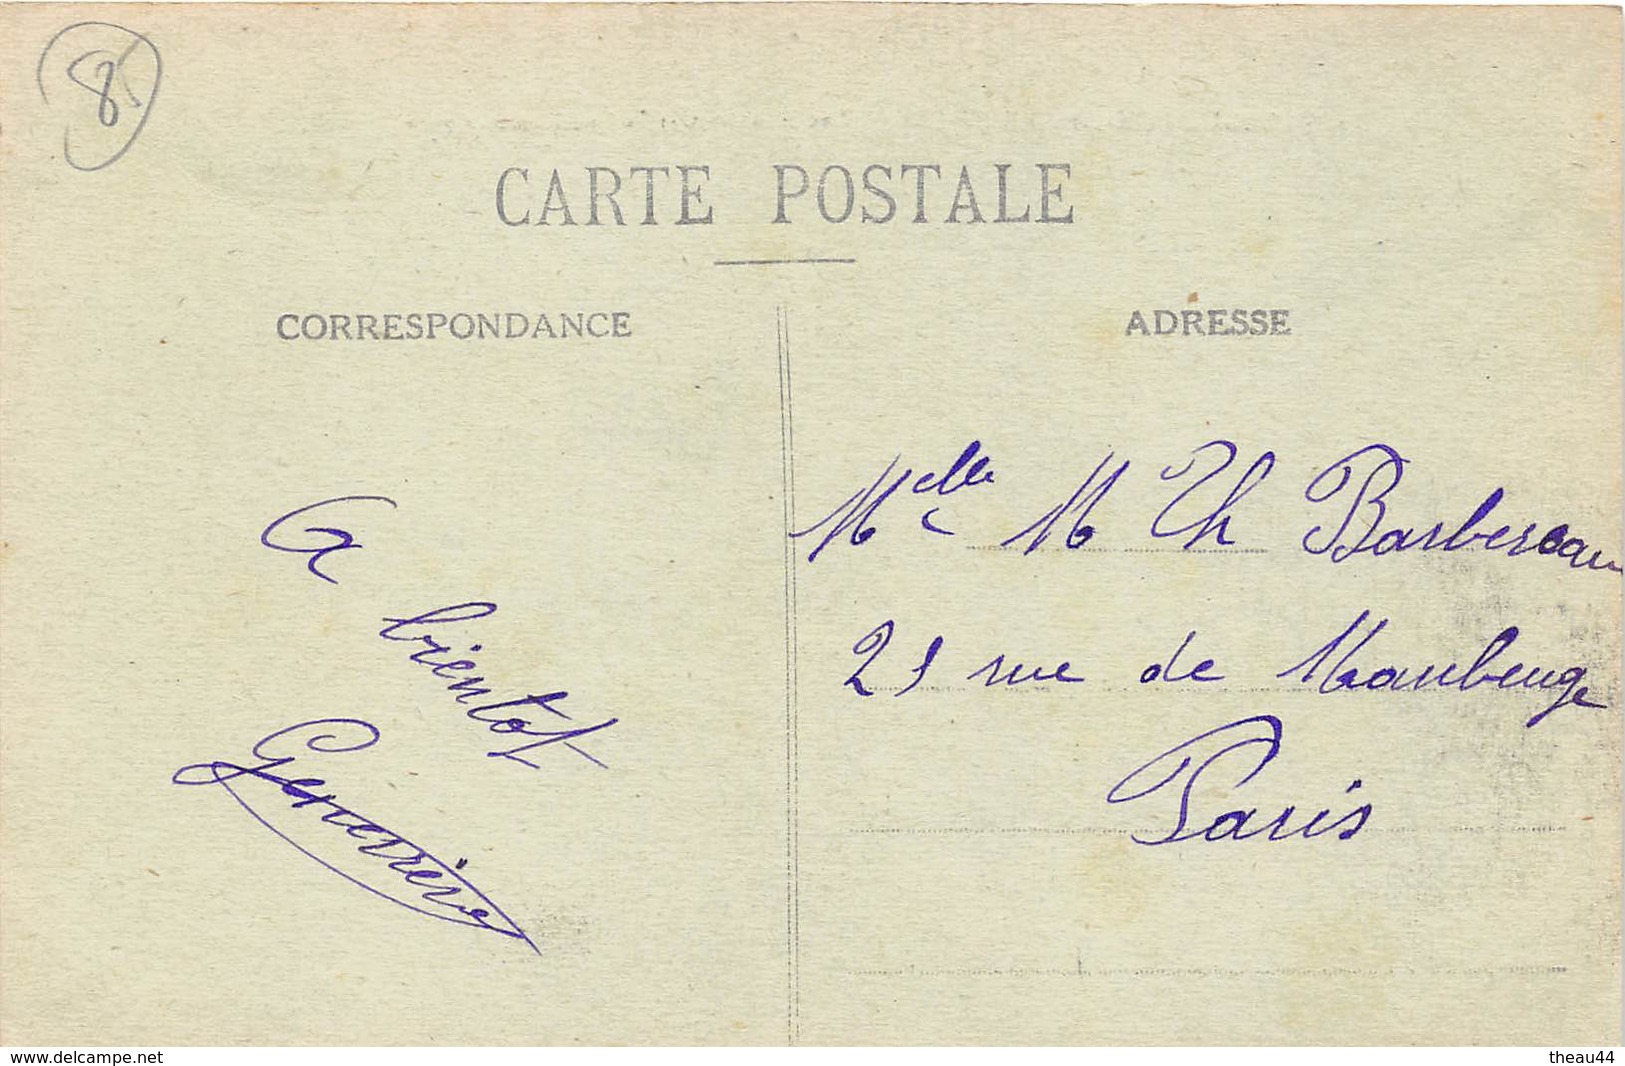 85
CARTE POSTALE
CORRESPONDANCE
A
bientot
Geneviève
ADRESSE
Melle M Th Barbereau
21 rue de Maubeuge
Paris
www.delcampe.net
theau44